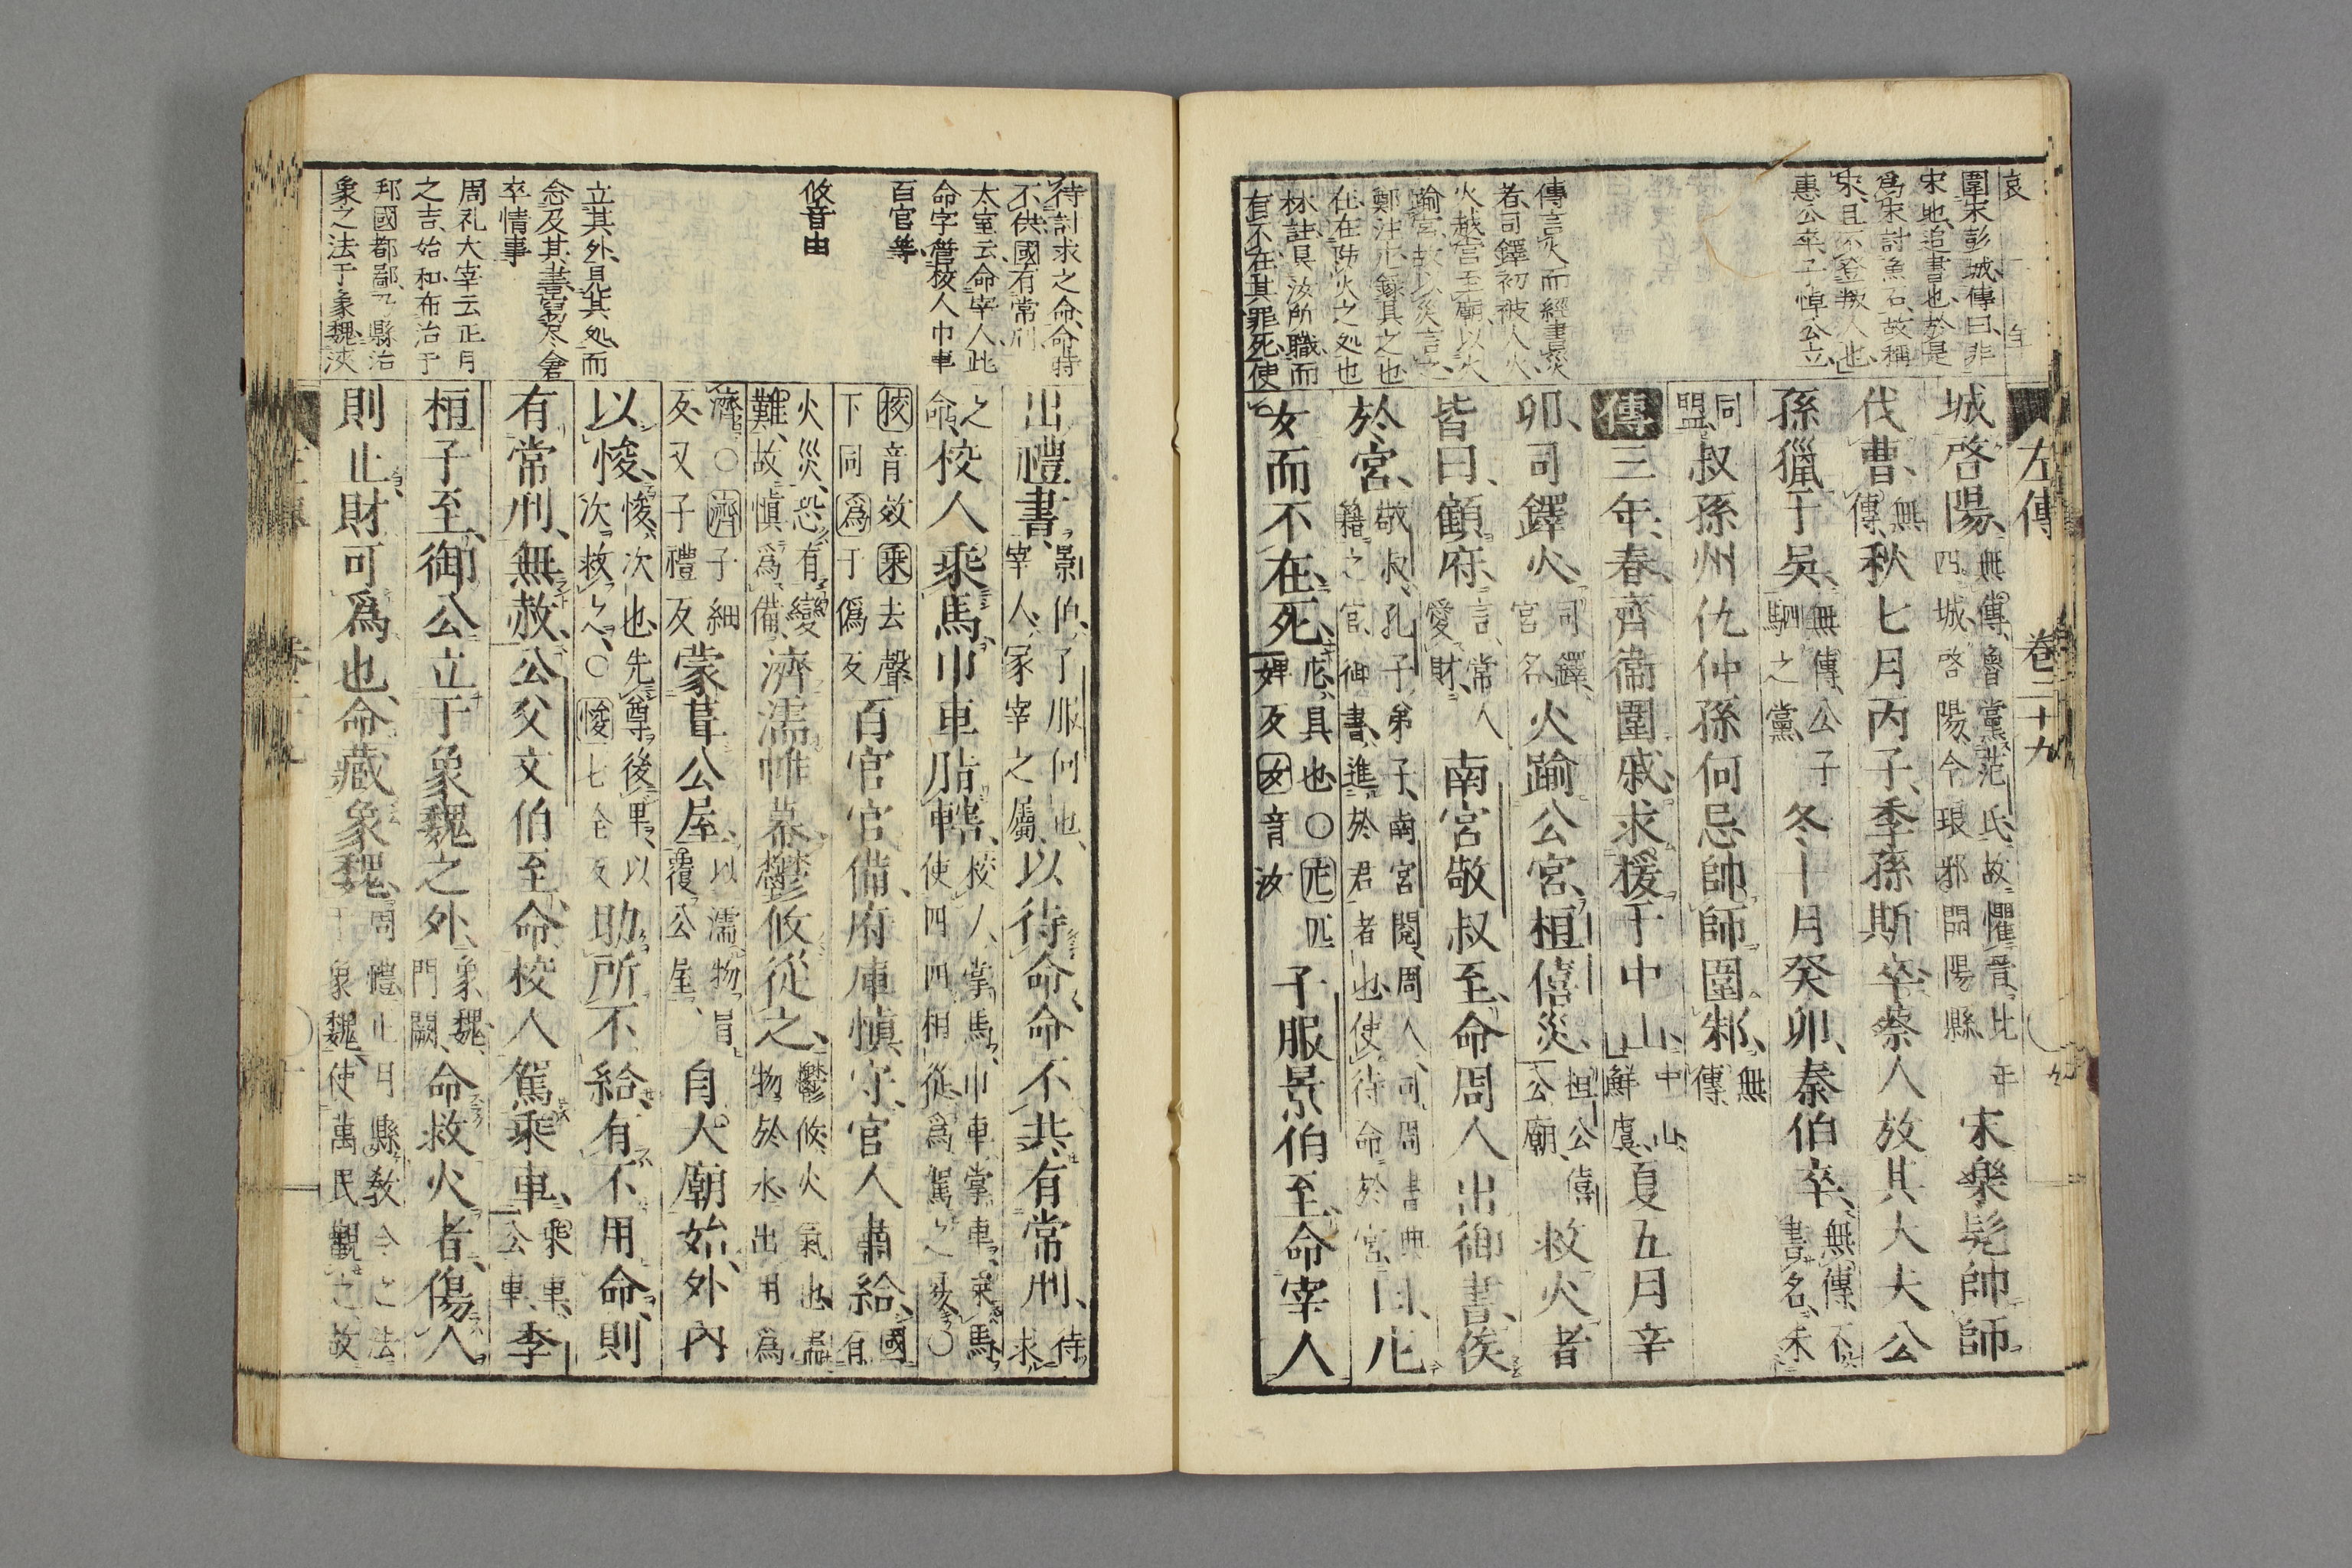 左傳 卷二十九
哀
圍宋彭城傳曰非
宋地追書也於是
爲宋討魚石故稱
宋且不登叛人也
惠公卒子悼公立
傳言火而經書災
者司鐸初被人火
火越宮至廟以火
踰宮故以災言之
在在防火之処也
林註具汝所職而
有不在其罪死使
城啓陽無傳魯黨范氏故懼晉比年四城啓陽今琅邪開陽縣宋樂髡帥師
伐曹無傳秋七月丙子季孫斯卒蔡人放其大夫公
孫獵于吳無傳公子駟之黨冬十月癸卯秦伯卒無傳不書名未
同盟叔孫州仇仲孫何忌帥師圍邾無傳
傳三年春齊衞圍戚求援于中山中山鮮虞夏五月辛
卯司鐸火司鐸宮名火踰公宮桓僖災桓公僖公廟救火者
皆曰顧府言常人愛財南宮敬叔至命周人出御書俟
於宮敬叔孔子弟子南宮閱周人司周書典籍之官御書進於君者也使待命於宮曰庀
女而不在死庀具也○庀匹婢反女音汝子服景伯至命宰人
待討求之命命待
不供國有常刑
太室云命宰人此
命字管校人巾車
百官等
攸音由
立其外見其処而
念及其書寫尽倉
卒情事
周礼大宰云正月
之吉始和布治于
邦國都鄙乃縣治
象之法于象魏浹
出禮書景伯子服何也宰人冢宰之屬以待命命不共有常刑待求
之命校人乘馬巾車脂轄校人掌馬巾車掌車乘馬使四四相從爲駕之易○
校音效乘去聲下同爲于僞反百官官備府庫愼守官人肅給國有
火災恐有變難故愼爲備濟濡帷幕鬱攸從之鬱攸火氣也濡物於水出用爲
濟○濟子細反又子禮反蒙葺公屋以濡物冒覆公屋自大廟始外內
以悛悛次也先尊後卑以次救之○悛七全反助所不給有不用命則
有常刑無赦公父文伯至命校人駕乘車乘車公車季
桓子至御公立于象魏之外象魏門闕命救火者傷人
則止財可爲也命藏象魏周禮正月縣敎令之法于象魏使萬民觀之故